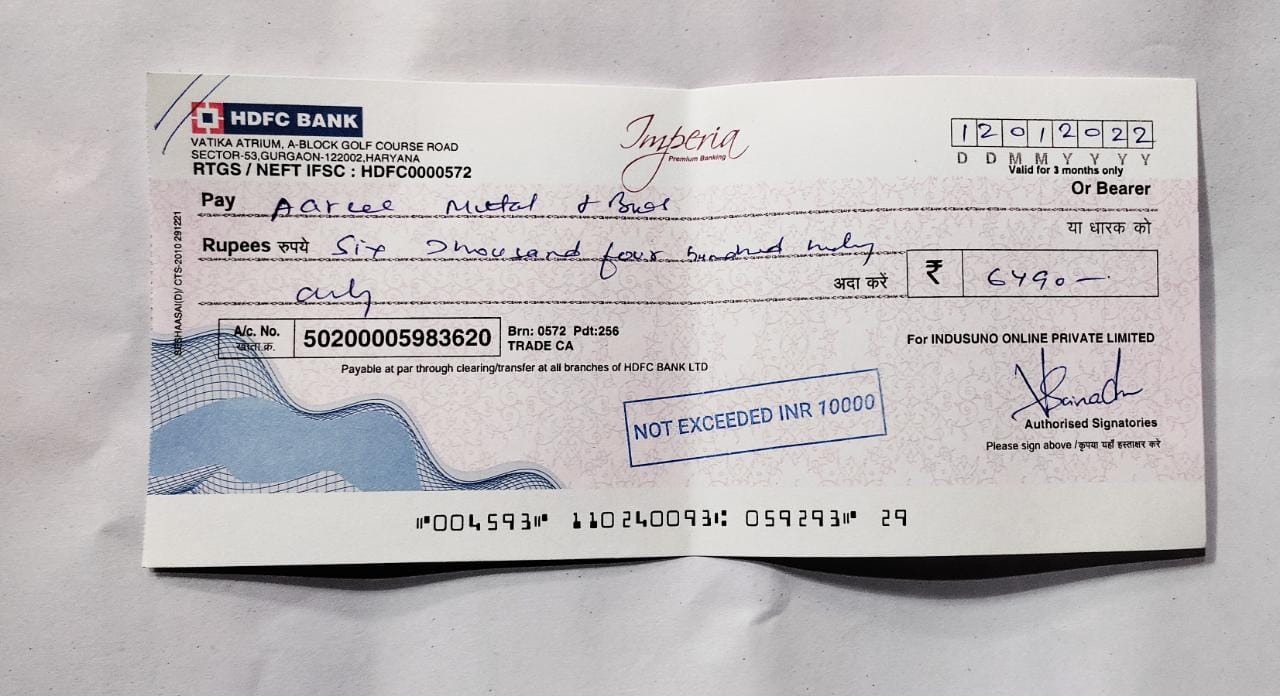 HDFC BANK
VATIKA ATRIUM, A-BLOCK GOLF COURSE ROAD
SECTOR-53,GURGAON-122002,HARYANA
RTGS / NEFT IFSC : HDFC0000572
Imperia
Premium Banking
12012022
D D M M Y Y Y Y
Valid for 3 months only
Or Bearer
Pay
या धारक को
Rupees रुपये Six Thousand four hundred
अदा करें ₹ 6490-
A/c. No.
खाता.क्र.
50200005983620
Brn: 0572 Pdt:256
TRADE CA
Payable at par through clearing/transfer at all branches of HDFC BANK LTD
For INDUSUNO ONLINE PRIVATE LIMITED
NOT EXCEEDED INR 10000
Authorised Signatories
Please sign above /कृपया यहाँ हस्ताक्षर करे
CTS-2010 291221
⑈004593⑈ 110240093⑆ 059293⑈ 29